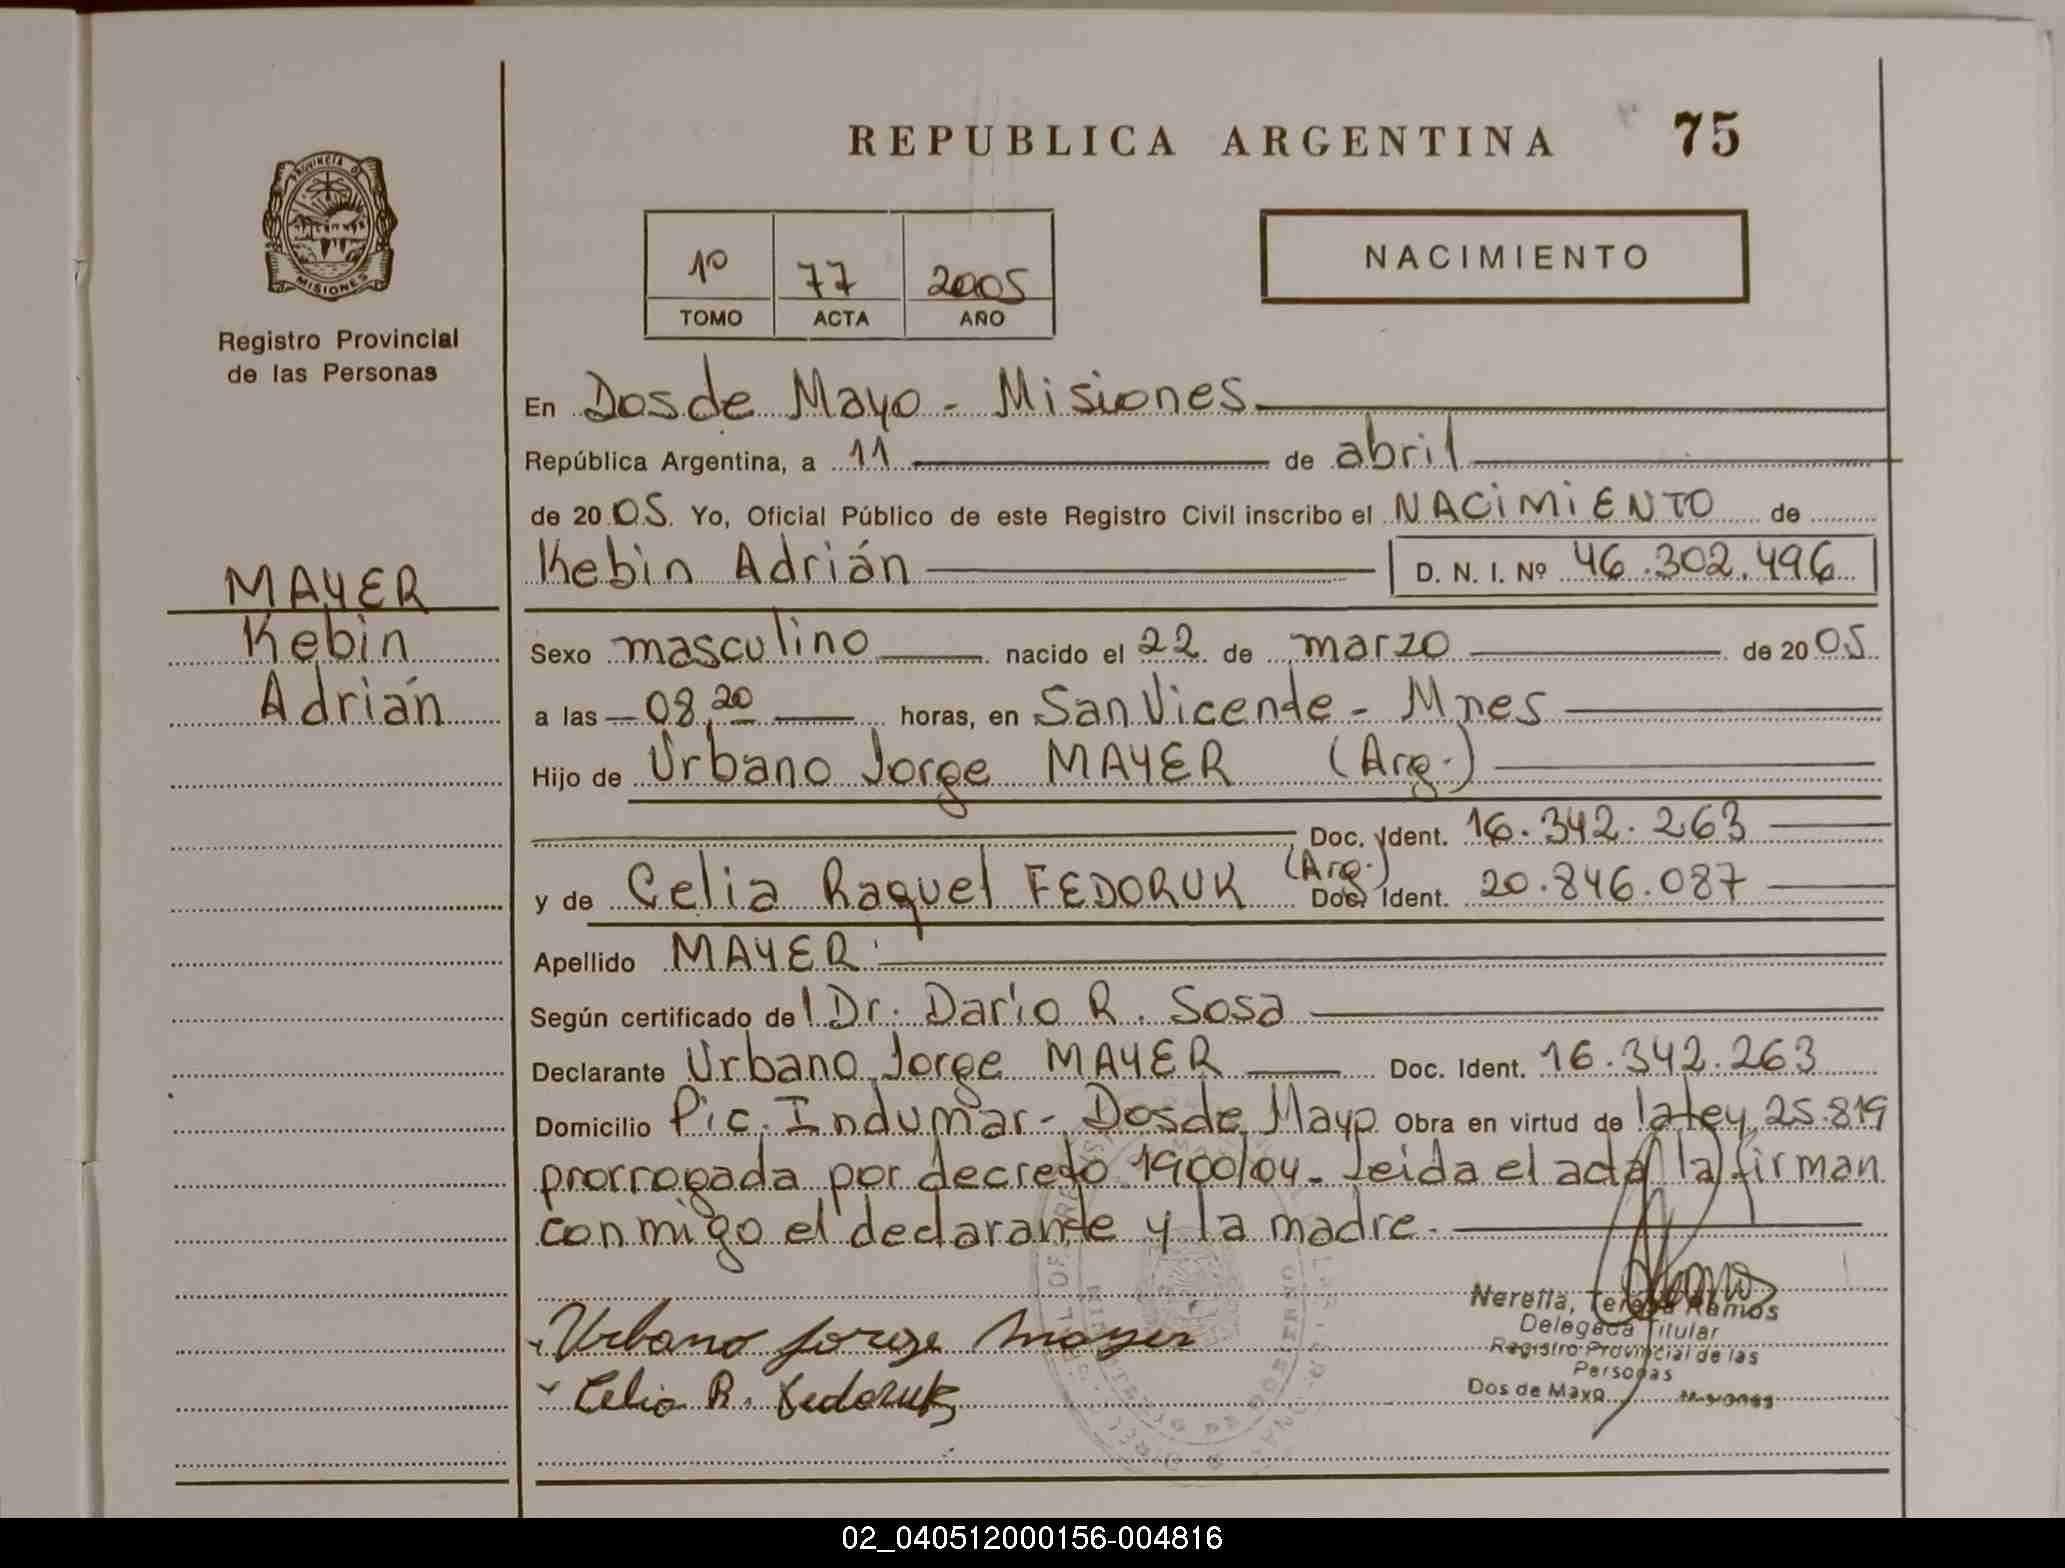 REPUBLICA ARGENTINA 75
PROVINCIA DE
MISIONES
Registro Provincial
de las Personas
1º 77 2005
TOMO ACTA AÑO
NACIMIENTO
En Dos de Mayo - Misiones
República Argentina, a 11 de abril
de 2005. Yo, Oficial Público de este Registro Civil inscribo el NACIMIENTO de
Kebin Adrián D. N. I. Nº 46.302.496
MAYER
Kebin
Adrián
Sexo masculino nacido el 22 de marzo de 2005
a las 08,20 horas, en San Vicente - Mnes
Hijo de Urbano Jorge MAYER (Arg.)
Doc. Ident. 16.342.263
y de Celia Raquel FEDORUK (Arg.) Doc. Ident. 20.846.087
Apellido MAYER
Según certificado del Dr. Darío R. Sosa
Declarante Urbano Jorge MAYER Doc. Ident. 16.342.263
Domicilio Pic. Indumar - Dos de Mayo Obra en virtud de la ley 25.819
prorrogada por decreto 1900/04. Leida el acta la firman
conmigo el declarante y la madre.
Urbano Jorge Mayer
Celia R. Fedoruk
Nerella, Teresa Ramos
Delegada Titular
Registro Provincial de las
Personas
Dos de Mayo Misiones
02_040512000156-004816